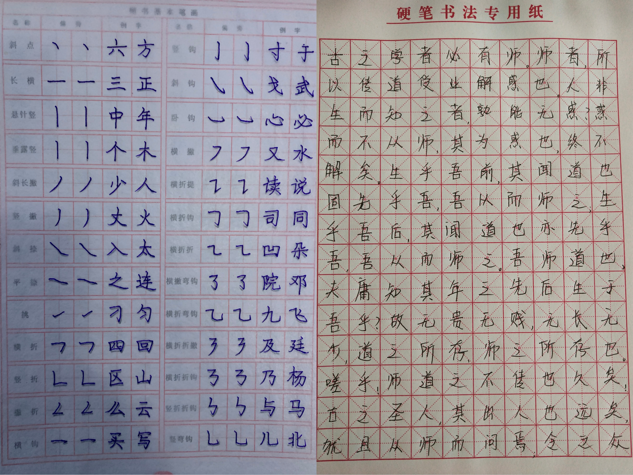 斜点 丶 丶 六 方 竖钩 亅 亅 寸 于
长横 一 一 三 正 斜钩 ㇂ ㇂ 戈 武
悬针竖 丨 丨 中 年 卧钩 ㇃ ㇃ 心 必
垂露竖 丨 丨 个 木 横撇 ㇇ ㇇ 又 水
斜长撇 丿 丿 少 人 横折提 ㇊ ㇊ 读 说
竖撇 丿 丿 丈 火 横折钩 ㇆ ㇆ 司 同
斜捺 ㇏ ㇏ 入 太 横折折 ㇍ ㇍ 凹 朵
平捺 ㇏ ㇏ 之 连 横撇弯钩 ㇌ ㇌ 院 邓
挑 ㇀ ㇀ 刁 匀 横折弯钩 ㇈ ㇈ 九 飞
横折 ㇕ ㇕ 四 回 横折折撇 ㇋ ㇋ 及 廷
竖折 ㇗ ㇗ 区 山 横折折钩 ㇡ ㇡ 乃 杨
撇折 ㇜ ㇜ 么 云 竖折折钩 ㇉ ㇉ 与 马
横钩 ㇖ ㇖ 买 写 竖弯钩 ㇟ ㇟ 儿 北
硬笔书法专用纸
古之学者必有师。师者,所
以传道受业解惑也。人非
生而知之者,孰能无惑?惑
而不从师,其为惑也,终不
解矣。生乎吾前,其闻道也
固先乎吾,吾从而师之,生
乎吾后,其闻道也亦先乎
吾,吾从而师之。吾师道也,
夫庸知其年之先后生于
吾乎?故无贵无贱,无长无
少,道之所存,师之所存也。
嗟乎,师道之不传也久矣,
古之圣人,其出人也远矣,
犹且从师而问焉,今之众